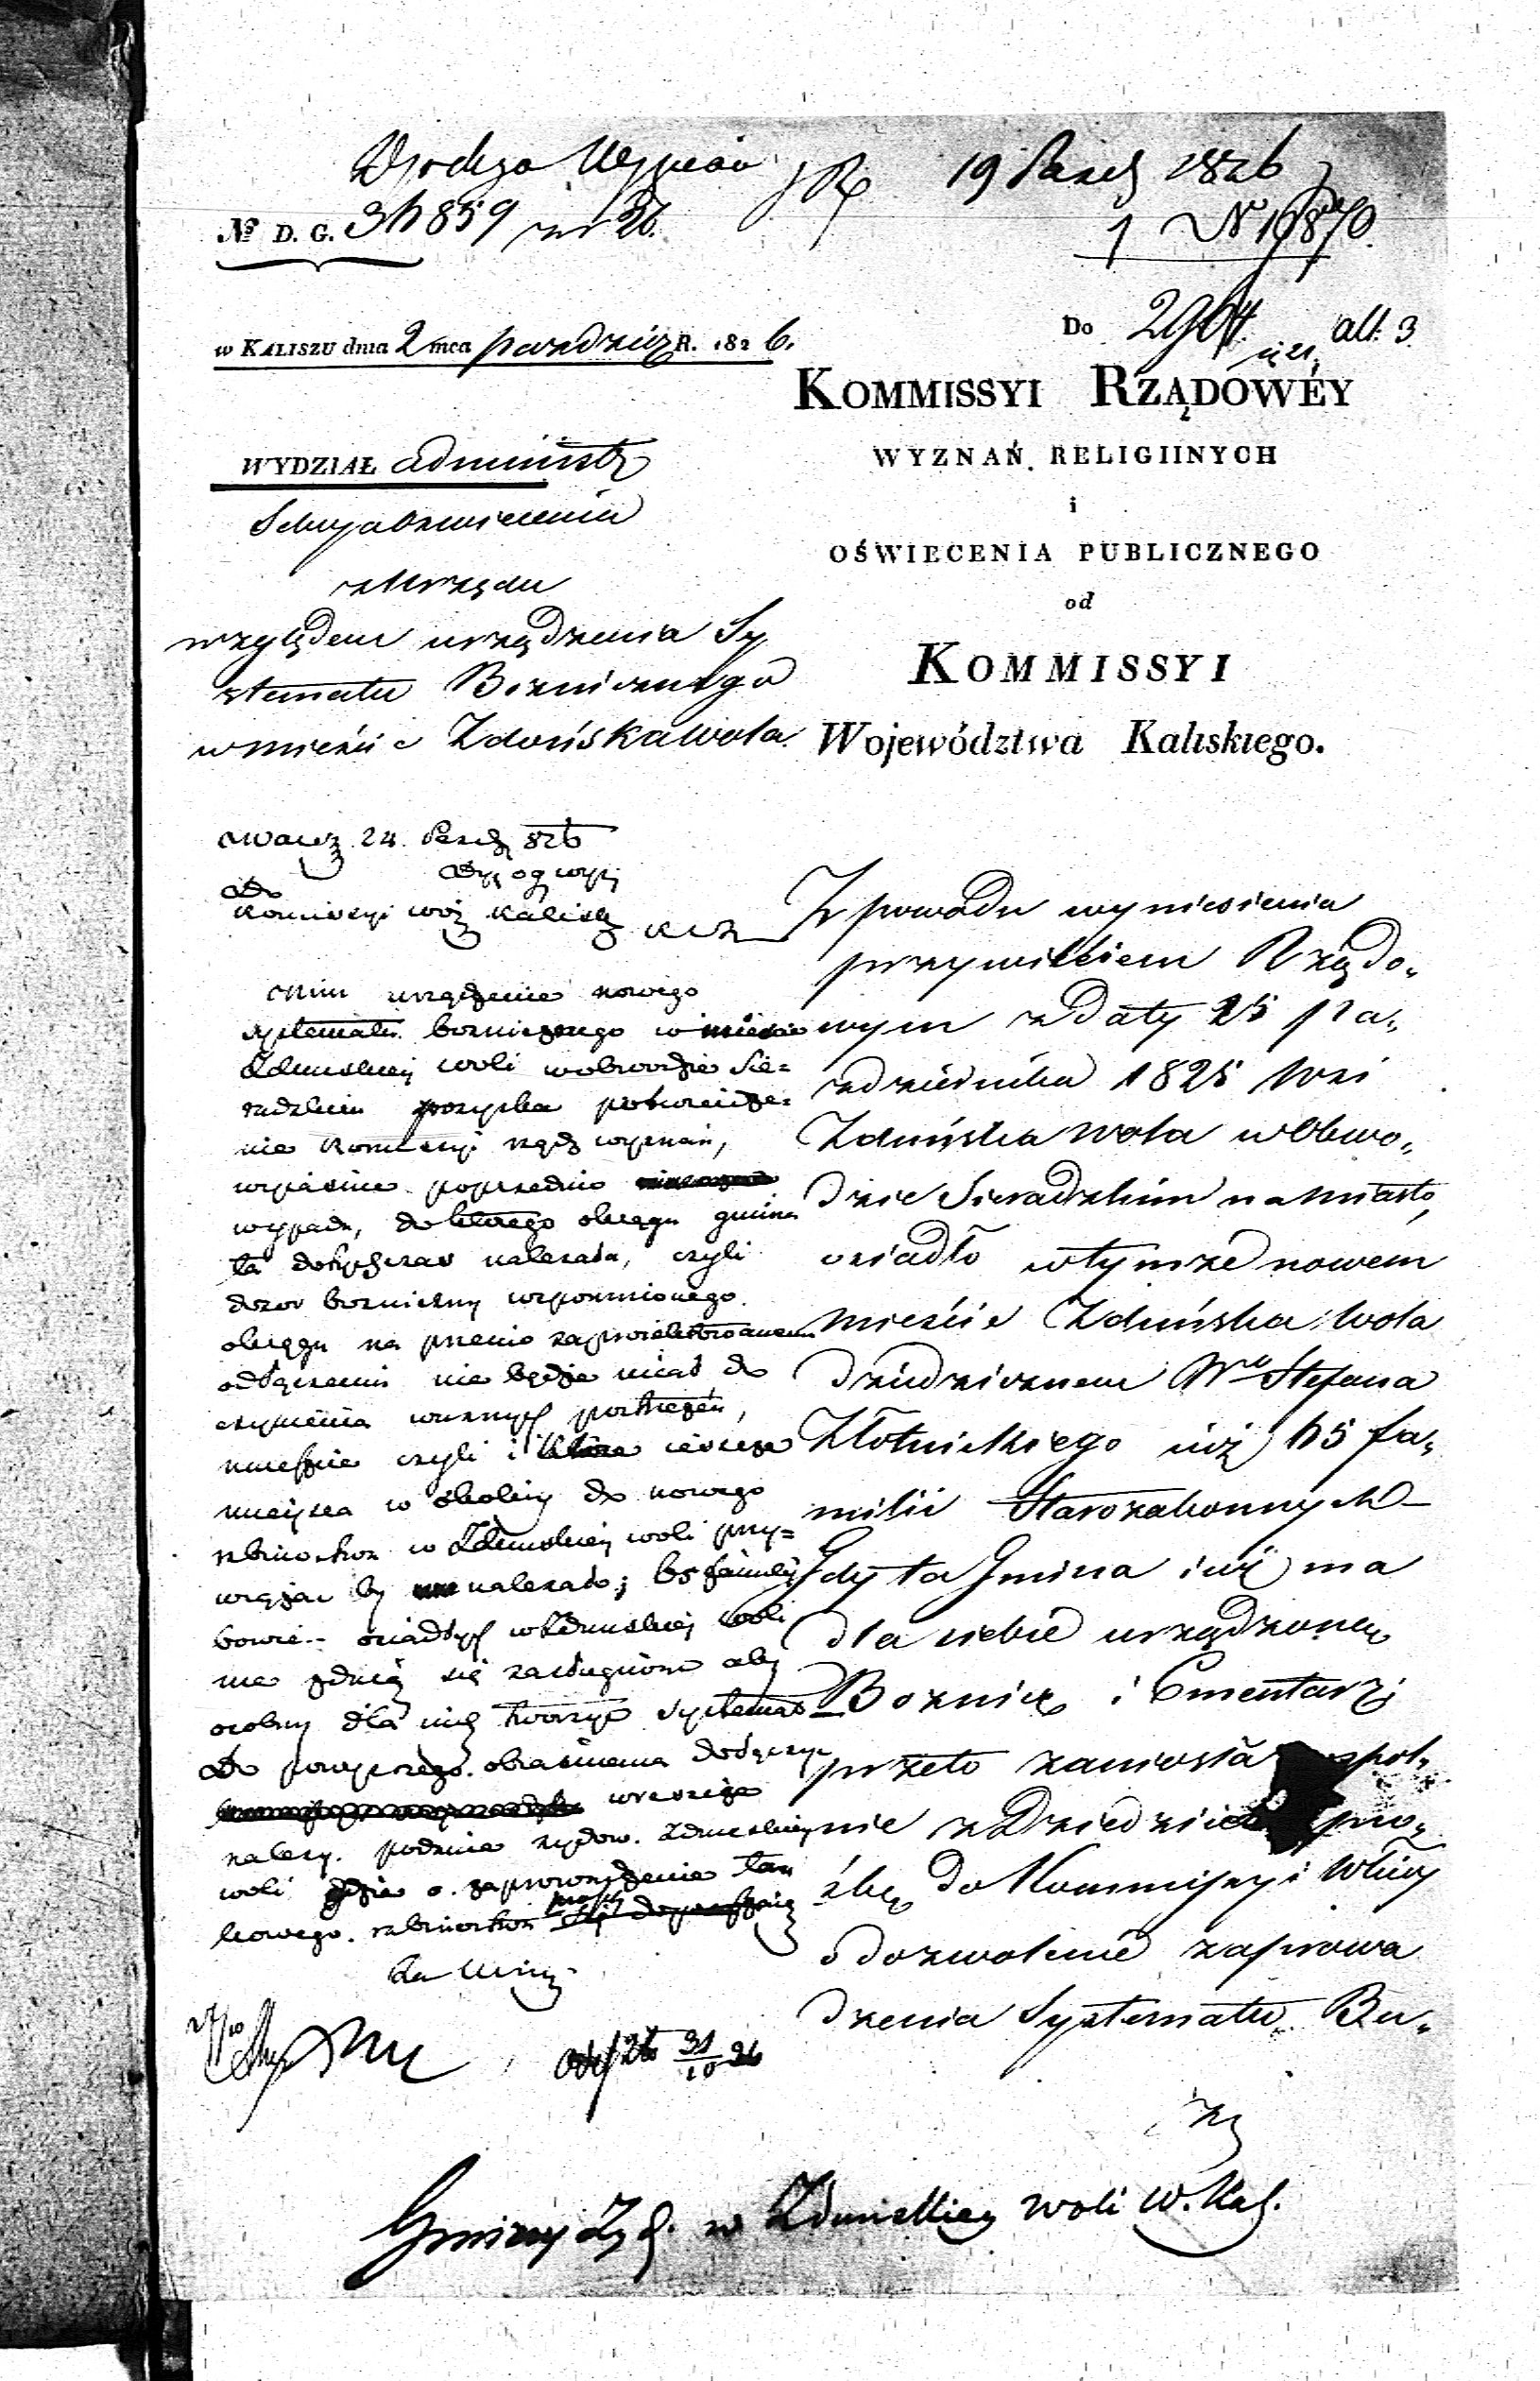 19 Paźd 1826
№ D. G. 34859
1 № 19870.
Do 2904. alt. 3
w KALISZU dnia 2 mca październ R. 1826.
KOMMISSYI RZĄDOWÉY
WYZNAŃ RELIGIINYCH
i
OŚWIECENIA PUBLICZNEGO
od
KOMMISSYI
Województwa Kaliskiego.
WYDZIAŁ administr
Sekcya
z Urzędu
względem urządzenia Sy
stematu Boznicznego
w mieście Zduńska Wola.
24. Paźdz 826
do
Komissyi woj Kalisk
Nim urządzenie nowego
systematu bozniczego w mieście
Zdunskiey woli w obwodzie Sie=
radzkim pozyska potwierdze=
nie Komissyi rządz wyznań,
wyjaśnić poprzednio
wypada, do którego okręgu gmina
ta dotychczas należała, czyli
dozor bozniczny wspomnionego
okręgu na przeciw zaprojektowanemu
odłączeniu nie będzie miał do
czynienia ważnych postrzeżeń,
niemniej czyli i które ieszcze
mieysca w okolicy do nowego
w Zdunskiey woli przy=
wiązać by należało; 65 familij
bowie- osiadłych w Zdunskiey woli
nie zdaią się zasługiwać aby
osobny dla nich tworzyć systemat
Do powyższego obiaśnienia dołączyć
wreszcie
należy podanie żydow Zdunskiey
woli o zaprowadzenie tam
Z powodu wyniesienia
przywileiem Rządo„
wym z daty 25 Pa„
ździernika 1825 Wsi
Zduńska Wola w Obwo„
dzie Sieradzkim na Miasto,
osiadło w tymże nowem
mieście Zduńska Wola
dziedzicznem Wo Stefana
Złotnickiego iuż 65 fa„
milii Starozakonnych—
Gdy ta Gmina iuż ma
dla siebie urządzoną
Boznicę i Cmentarz
przeto zaniosła wspol„
nie z Dziedzicem pro„
źbę do Kommissyi Wwy
o dozwolenie zaprowa
dzenia Systematu Bu„
31/10 26
Gminy Żyd. w Zdunskiey Woli W. Kal.